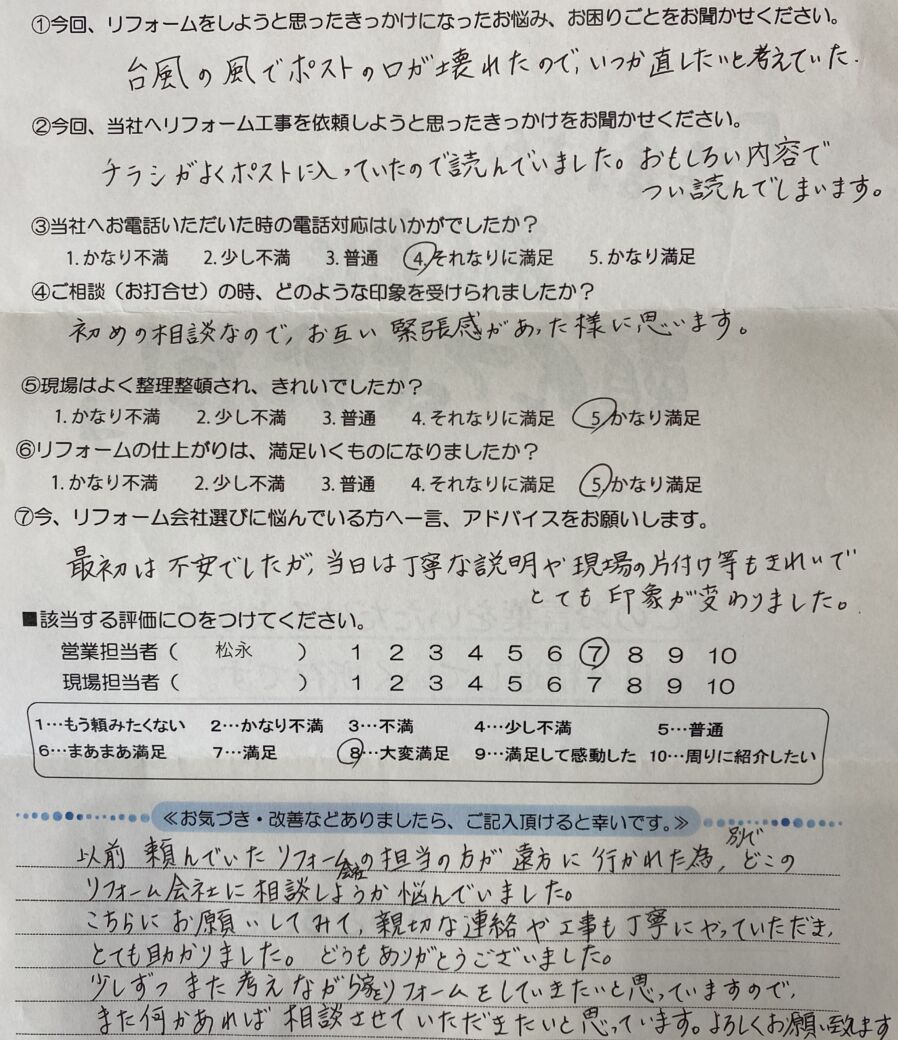 ①今回、リフォームをしようと思ったきっかけになったお悩み、お困りごとをお聞かせください。
台風の風でポストの口が壊れたので、いつか直したいと考えていた.
②今回、当社へリフォーム工事を依頼しようと思ったきっかけをお聞かせください。
チラシがよくポストに入っていたので読んでいました。おもしろい内容で
つい読んでしまいます。
③当社へお電話いただいた時の電話対応はいかがでしたか？
1.かなり不満 2.少し不満 3.普通 4.それなりに満足 5.かなり満足
④ご相談（お打合せ）の時、どのような印象を受けられましたか？
初めの相談なので、お互い緊張感があった様に思います。
⑤現場はよく整理整頓され、きれいでしたか？
1.かなり不満 2.少し不満 3.普通 4.それなりに満足 5.かなり満足
⑥リフォームの仕上がりは、満足いくものになりましたか？
1.かなり不満 2.少し不満 3.普通 4.それなりに満足 5.かなり満足
⑦今、リフォーム会社選びに悩んでいる方へ一言、アドバイスをお願いします。
最初は不安でしたが、当日は丁寧な説明や現場の片付け等もきれいで
とても印象が変わりました。
■該当する評価に〇をつけてください。
営業担当者（ 松永 ） 1 2 3 4 5 6 7 8 9 10
現場担当者（ ） 1 2 3 4 5 6 7 8 9 10
1…もう頼みたくない 2…かなり不満 3…不満 4…少し不満 5…普通
6…まあまあ満足 7…満足 8…大変満足 9…満足して感動した 10…周りに紹介したい
≪お気づき・改善などありましたら、ご記入頂けると幸いです。≫
以前頼んでいたリフォーム会社の担当の方が遠方に行かれた為、別でどこの
リフォーム会社に相談しようか悩んでいました。
こちらにお願いしてみて、親切な連絡や工事も丁寧にやっていただき、
とても助かりました。どうもありがとうございました。
少しずつまた考えながら家をリフォームをしていきたいと思っていますので、
また何かあれば相談させていただきたいと思っています。よろしくお願い致します